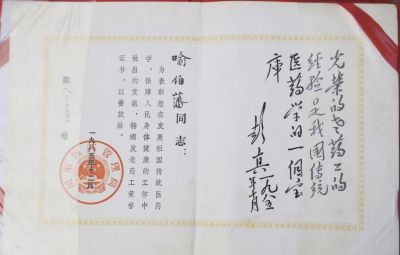 光荣的老药工的
经验是我國传统
医药学的一個宝
库
彭真 一九八五年十月
喻伯藩同志：
为表彰您在发展祖国传统医药
学、保障人民身体健康的工作中
做出的贡献，特颁发老药工荣誉
证书，以资鼓励。
国家医药管理局
一九八五年十二月
第 号